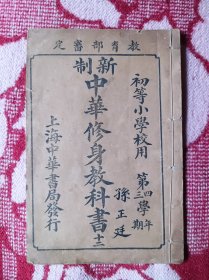 教育部審定
初等小學校用
第四學年
第三學期
新制
中華修身教科書
十二
孫正廷
上海中華書局發行